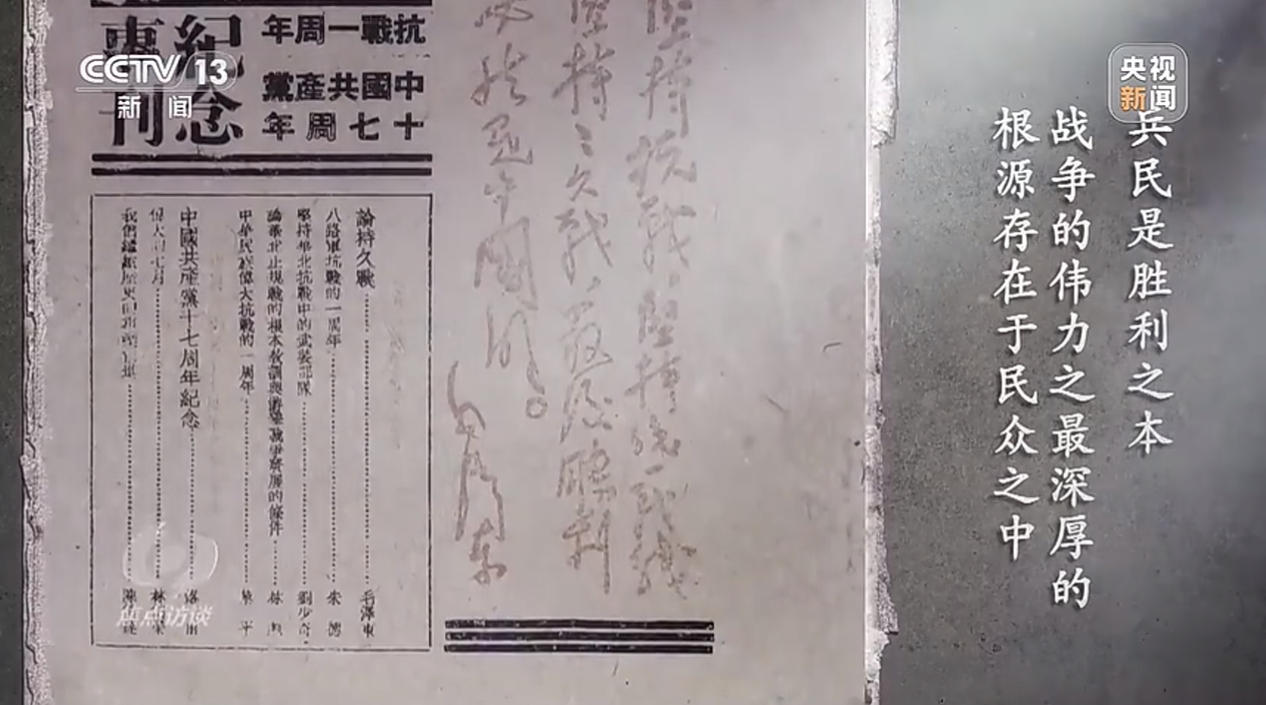 CCTV 13
新闻
央视
新闻
兵民是胜利之本
战争的伟力之最深厚的
根源存在于民众之中
紀念
專刊
抗戰一周年
中國共產黨
十七周年
堅持抗戰，堅持統一戰線
堅持持久戰，最後勝利
必然是中國的。
毛澤東
論持久戰 毛澤東
八路軍抗戰的一周年 朱德
堅持華北抗戰中的武裝部隊 劉少奇
論華北正規戰的根本教訓與游擊戰爭發展的條件 林
中華民族偉大抗戰的一周年
中國共產黨十七周年紀念 洛甫
偉大 七月 林
我們 歷史
焦点访谈